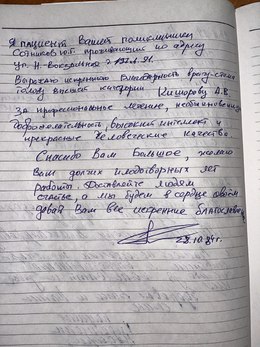 Я пациент Вашей поликлиники
Сотников Ю.Г. проживающий по адресу
ул. Н-Вокзальная
Выражаю искреннюю благодарность врачу-стома
тологу высшей категории Кишорову А.В
За профессиональное лечение, необыкновенную
доброжелательность, высокий интеллект и
прекрасные Человеческие качества
Спасибо Вам Большое, желаю
Вам долгих плодотворных лет
работы. Доставляйте людям
счастье, а мы будем в сердце своём
давай Вам все искренние благословения
28.10.24г.